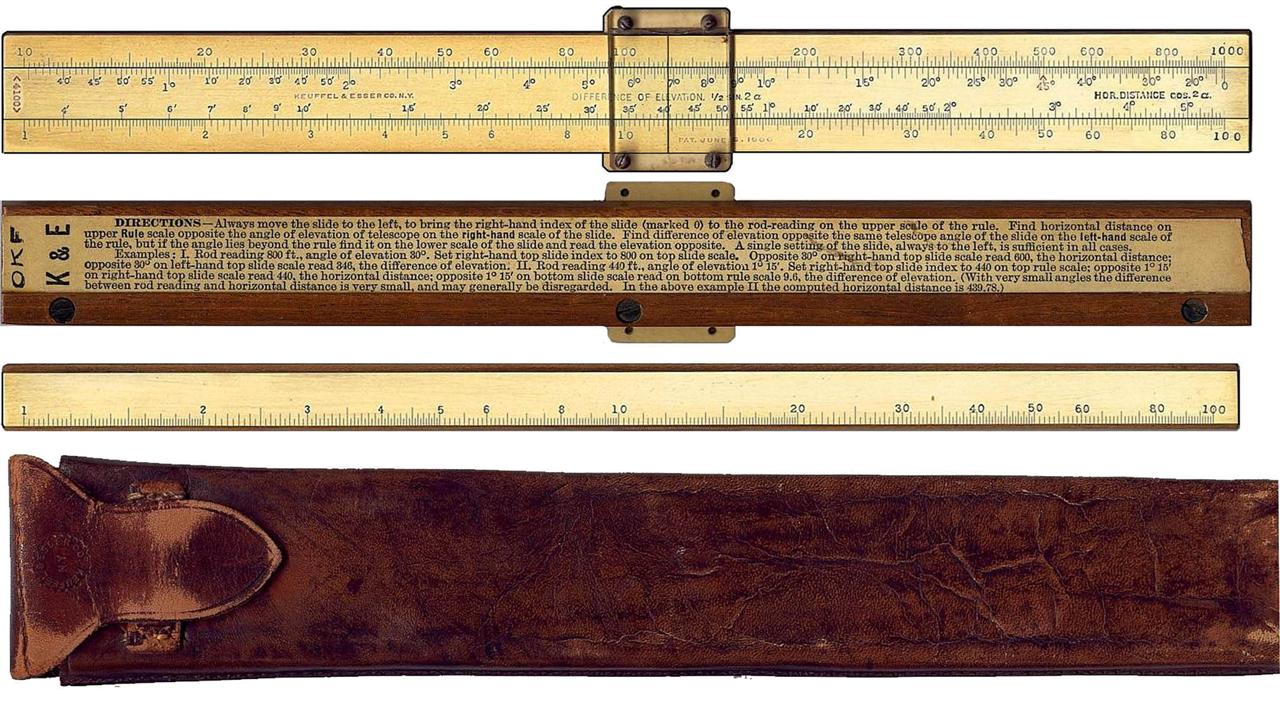 10 20 30 40 50 60 80 100 200 300 400 500 600 800 1000
40' 45' 50' 55' 1° 10' 20' 30' 40' 50' 2° 3° 4° 5° 6° 7° 8° 9° 10° 15° 20° 25° 30° 45° 30° 20° 10° 0
<4100>
KEUFFEL & ESSER CO. N.Y. DIFFERENCE OF ELEVATION. 1/2 SIN. 2 α HOR. DISTANCE cos.² α
4' 5' 6' 7' 8' 9' 10' 15' 20' 25' 30' 35' 40' 45' 50' 55' 1° 10' 20' 30' 40' 50' 2° 3° 4° 5°
1 2 3 4 5 6 8 10 20 30 40 50 60 80 100
PAT. JUNE
OKF
K & E
DIRECTIONS—Always move the slide to the left, to bring the right-hand index of the slide (marked 0) to the rod-reading on the upper scale of the rule. Find horizontal distance on
upper Rule scale opposite the angle of elevation of telescope on the right-hand scale of the slide. Find difference of elevation opposite the same telescope angle of the slide on the left-hand scale of
the rule, but if the angle lies beyond the rule find it on the lower scale of the slide and read the elevation opposite. A single setting of the slide, always to the left, is sufficient in all cases.
Examples: I. Rod reading 800 ft., angle of elevation 30°. Set right-hand top slide index to 800 on top slide scale. Opposite 30° on right-hand top slide scale read 600, the horizontal distance;
opposite 30° on left-hand top slide scale read 346, the difference of elevation. II. Rod reading 440 ft., angle of elevation 1° 15'. Set right-hand top slide index to 440 on top rule scale; opposite 1° 15'
on right-hand top slide scale read 440, the horizontal distance; opposite 1° 15' on bottom slide scale read on bottom rule scale 9.6, the difference of elevation. (With very small angles the difference
between rod reading and horizontal distance is very small, and may generally be disregarded. In the above example II the computed horizontal distance is 439.78.)
1 2 3 4 5 6 8 10 20 30 40 50 60 80 100